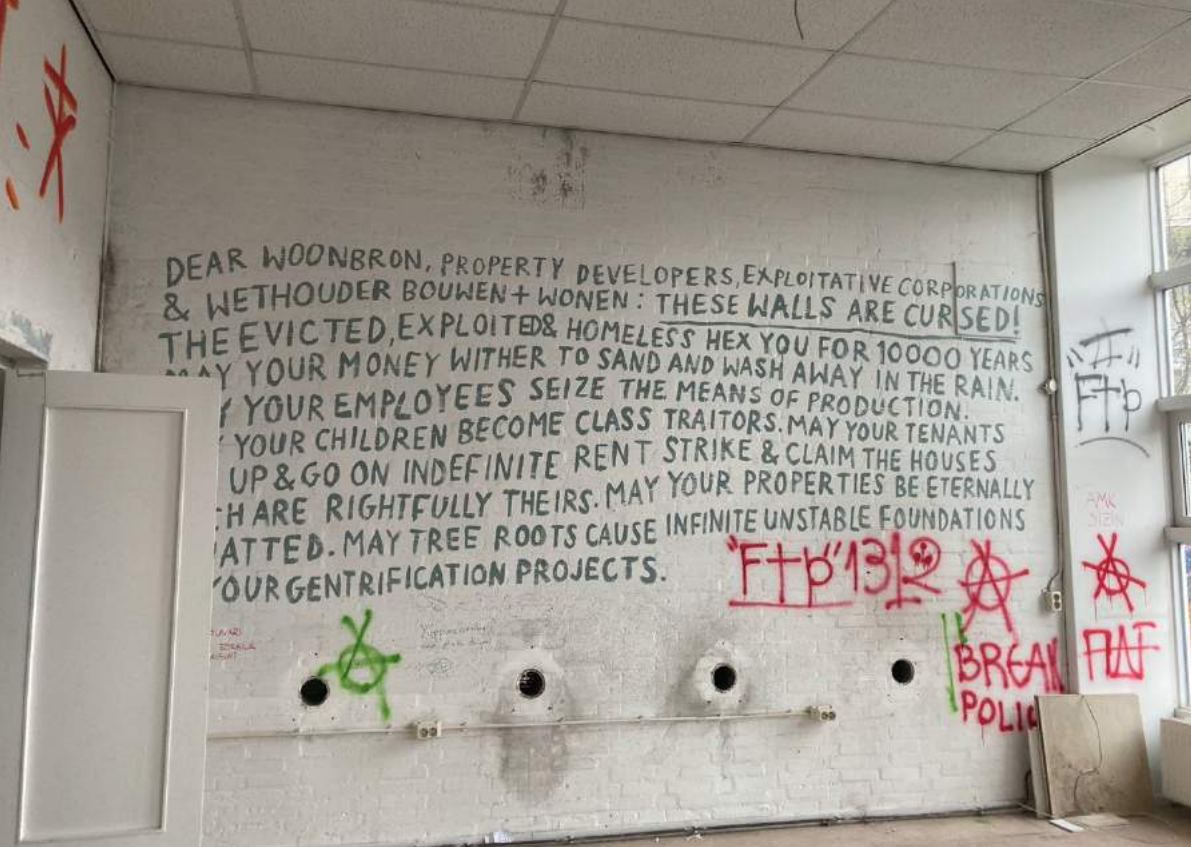 DEAR WOONBRON, PROPERTY DEVELOPERS, EXPLOITATIVE CORPORATIONS
& WETHOUDER BOUWEN + WONEN : THESE WALLS ARE CURSED!
THE EVICTED, EXPLOITED & HOMELESS HEX YOU FOR 10000 YEARS
MAY YOUR MONEY WITHER TO SAND AND WASH AWAY IN THE RAIN.
YOUR EMPLOYEES SEIZE THE MEANS OF PRODUCTION.
YOUR CHILDREN BECOME CLASS TRAITORS. MAY YOUR TENANTS
UP & GO ON INDEFINITE RENT STRIKE & CLAIM THE HOUSES
H ARE RIGHTFULLY THEIRS. MAY YOUR PROPERTIES BE ETERNALLY
ATTED. MAY TREE ROOTS CAUSE INFINITE UNSTABLE FOUNDATIONS
YOUR GENTRIFICATION PROJECTS.
"Ftp" 1312
BREAK
POLIC
Ftp
AMK
STEIN